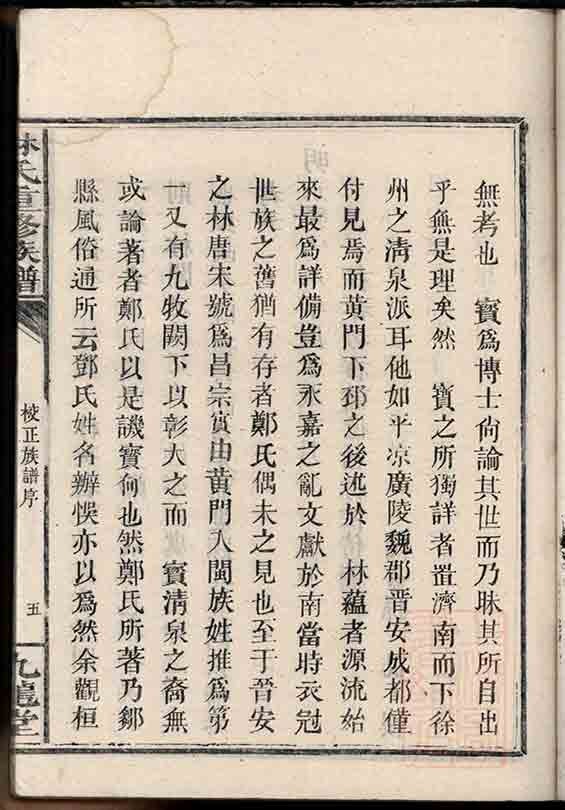 無考也　寶爲博士尙論其世而乃昧其所自出
乎無是理矣然　寶之所獨詳者置濟南而下徐
州之淸泉派耳他如平凉廣陵魏郡晋安成都僅
付見焉而黃門下邳之後述於　林蘊者源流始
來最爲詳備豈爲永嘉之亂文獻於南當時衣冠
世族之舊猶有存者鄭氏偶未之見也至于晉安
之林唐宋號爲昌宗實由黃門入閩族姓推爲第
一又有九牧闕下以彰大之而　寶清泉之裔無
或論著者鄭氏以是譏寶何也然鄭氏所著乃鄒
縣風俗通所云鄧氏姓名辦悞亦以爲然余觀桓
林氏重修族譜
校正族譜序
五
九龍堂